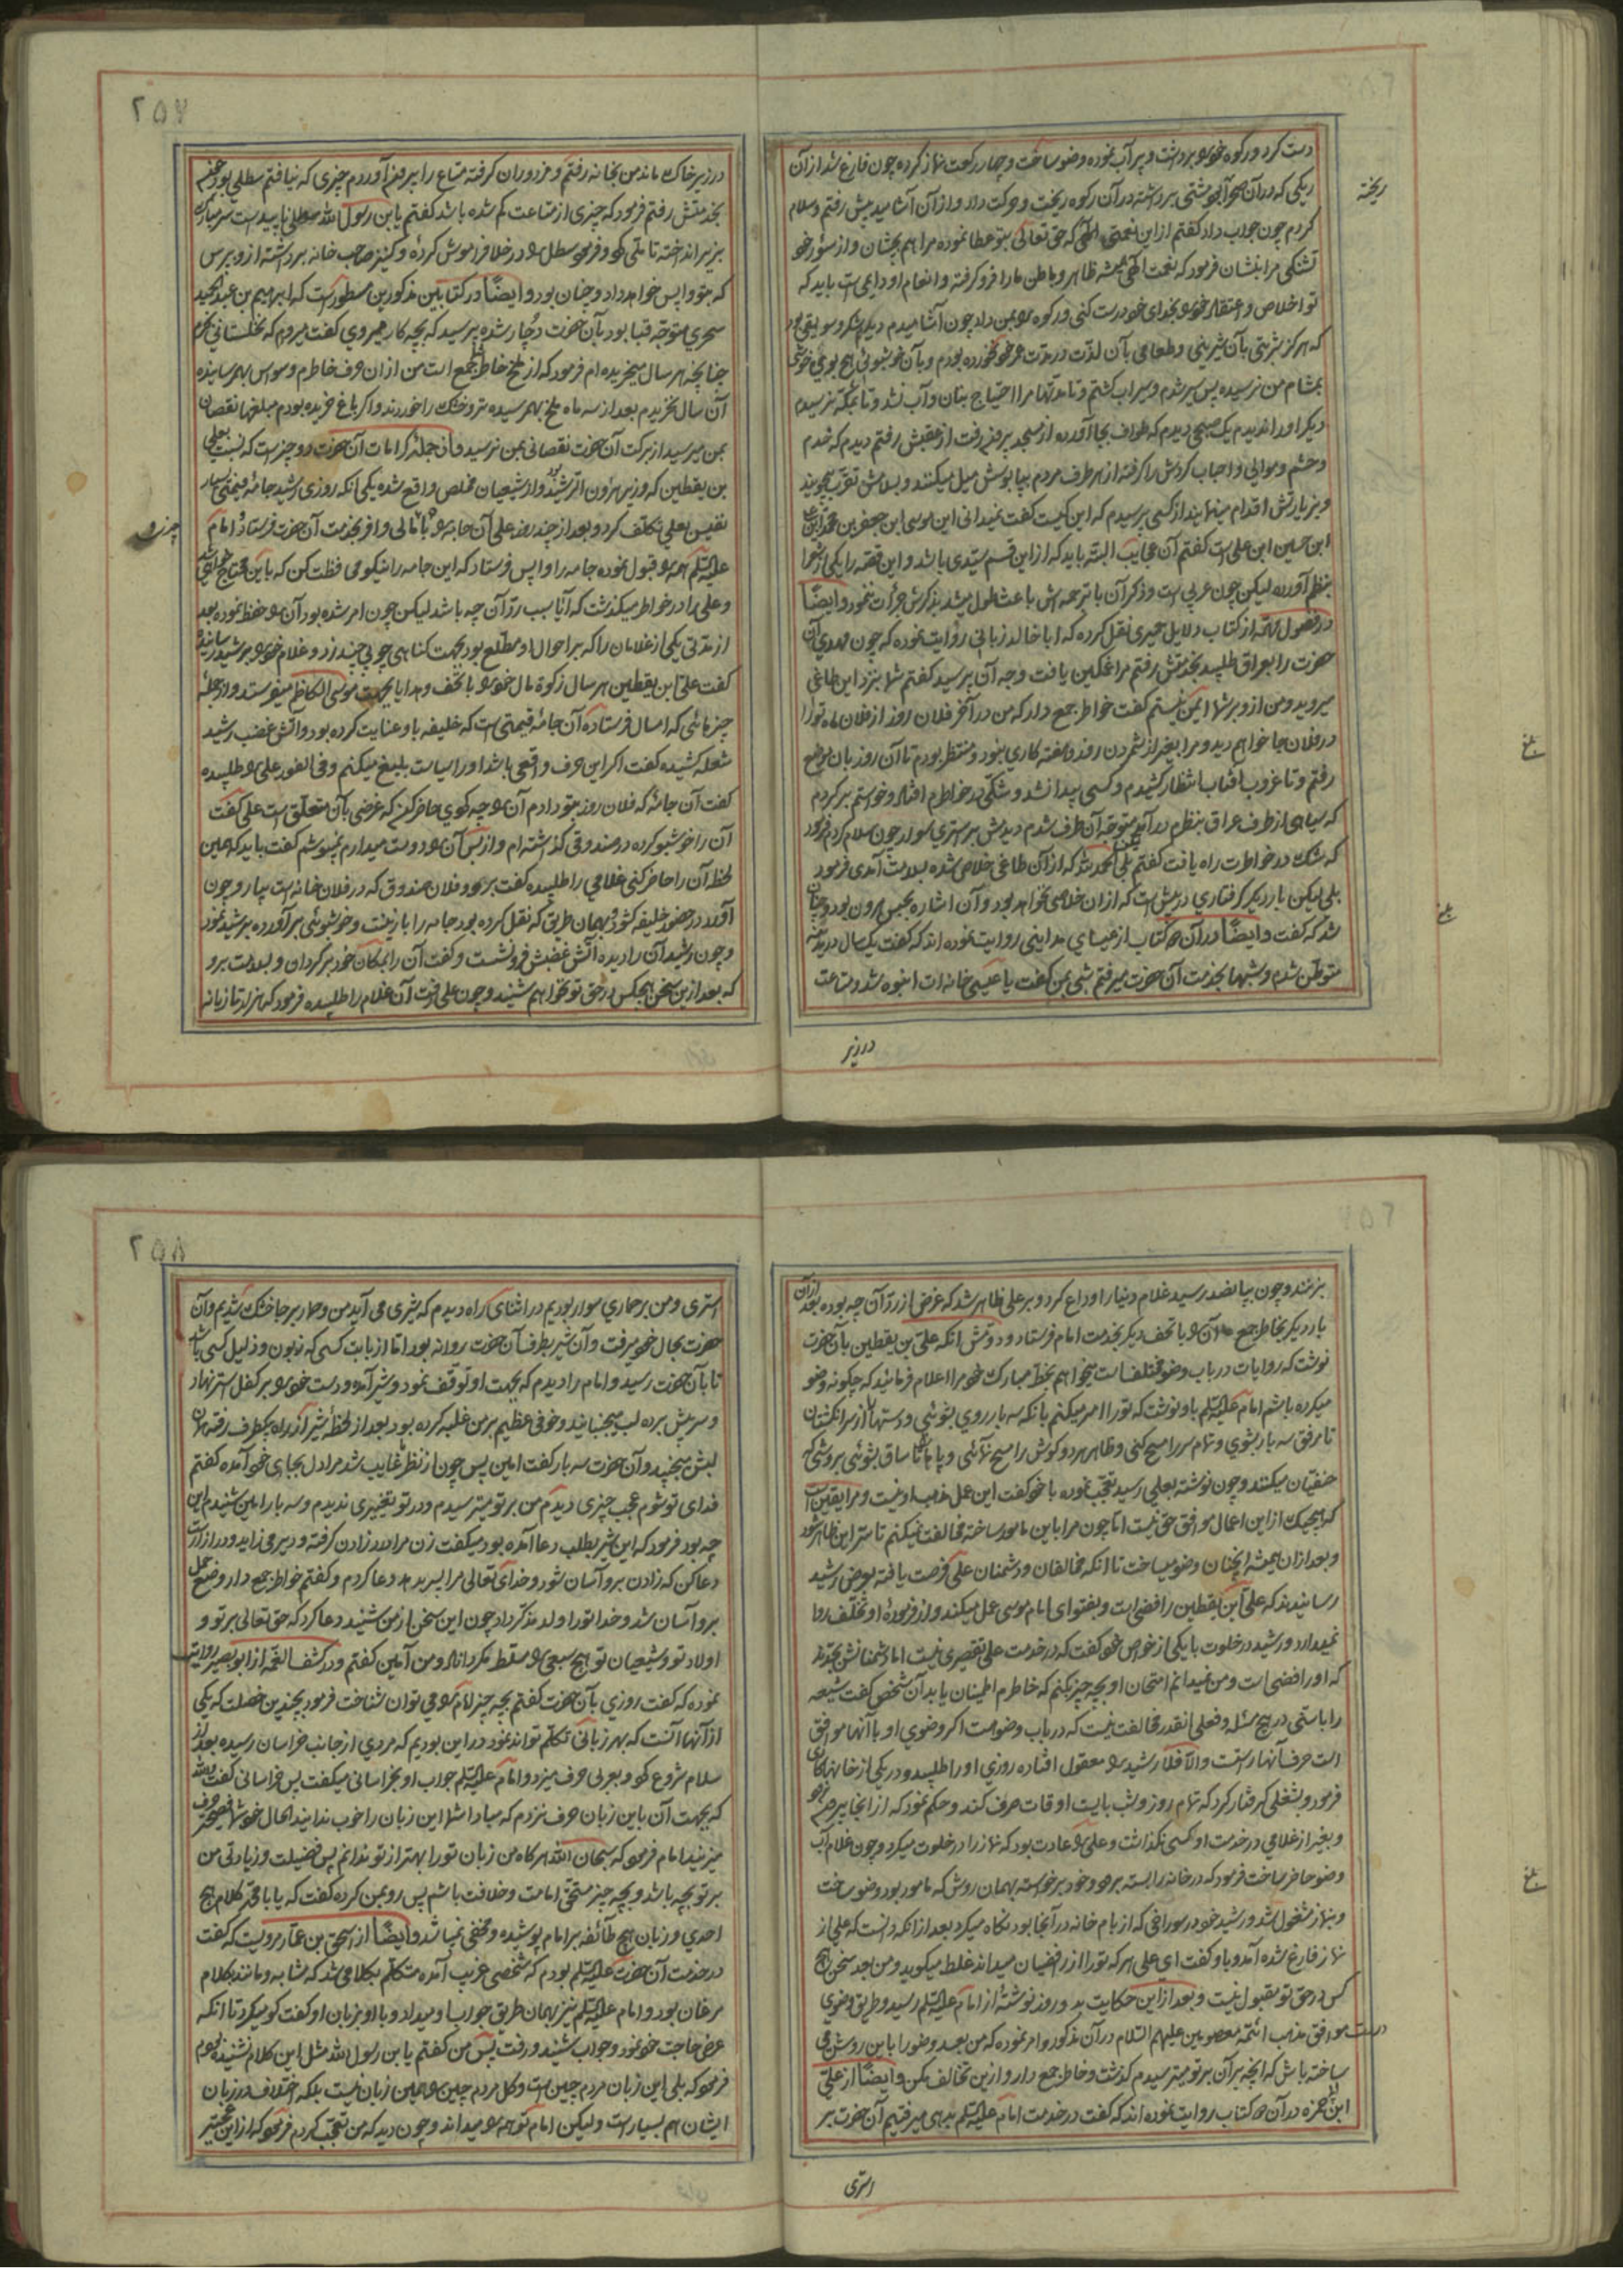 دست کرد و رکوه خود را برداشت و پر آب نموده وضو ساخت و چهار رکعت نماز کرده چون فارغ شد از آن
ریکی که در آن صحرا بود مشتی برداشته در آن رکوه ریخت و حرکت داد و از آن آشامید پیش رفتم و سلام
ریخته
کردم چون جواب داد کفتم از این نعمتی که حق تعالی بتو عطا نموده مرا هم بچشان و از سؤر خود
تشنکی مرا بنشان فرمود که نعمت الهی همیشه ظاهر و باطن ما را فرو کرفته و انعام او دایمی است باید که
تو اخلاص و اعتقاد خود را بخدای خود درست کنی و رکوه را بمن داد چون آشامیدم دیدم شکر و سویقی بود
که هرکز شربتی بآن شیرینی و طعامی بآن لذت در مدت عمر خود نخورده بودم و بآن خوشبوئی هیچ بوی خوشی
بمشام من نرسیده پس سیر شدم و سیراب کشتم و تا مدتها مرا احتیاج بنان و آب نشد و تا بمکه نرسیدم
دیکر او را ندیدم یک صبحی دیدم که طواف بجا آورده از مسجد بیرون رفت از عقبش رفتم دیدم که خدم
و حشم و موالی و احباب کردش را کرفته از هر طرف مردم بپابوسش میل میکنند و بسلامش تقرب میجویند
و بزیارتش اقدام مینمایند از کسی پرسیدم که این کیست کفت نمیدانی این موسی ابن جعفر بن محمد ابن علی
ابن حسین ابن علی است کفتم آن عجایب البته باید که از این قسم سیدی باشد و این قصه را یکی از شعرا
بنظم آورده لیکن چون عربی است و ذکر آن با ترجمه اش باعث طول میشد بذکرش جرأت ننمود و ایضًا
در فصول مهمه از کتاب دلایل حمیری نقل کرده که ابا خالد زبانی روایت نموده که چون مهدی آن
حضرت را بعراق طلبید بخدمتش رفتم مرا غمکین یافت وجه آن پرسید کفتم شما بنزد این طاغی
میروید و من از و بر شما ایمن نیستم کفت خواطر جمع دار که من در آخر فلان روز از فلان ماه تو را
در فلان جا خواهم دید و مرا بغیر از شمردن روز و هفته کاری نبود و منتظر بودم تا آن روز بآن موضع
بلغ
رفتم و تا غروب افتاب انتظار کشیدم و کسی پیدا نشد و شکی در خواطرم افتاد و خواستم برکردم
که سیاهی از طرف عراق بنظرم در آمد متوجه آن طرف شدم دیدمش بر استری سوار چون سلام کردم فرمود
که شک در خواطرت راه یافت کفتم بلی الحمد لله که از آن طاغی خلاص شده بسلامت آمدی فرمود
بلی لیکن بار دیکر کرفتاری در پیش است که از آن خلاصی نخواهد بود و آن اشاره بحبس هرون بود و چنان
بلغ
شد که کفت و ایضًا در آن دو کتاب از عیسای مداینی روایت نموده اند که کفت یکسال در مدینه
متوطن شدم و شبها بخدمت آن حضرت میرفتم شبی بمن کفت یا عیسی خانه ات انبوه شد و متاعت
در زیر
۲۵۷
در زیر خاک ماند من بخانه رفتم و مزدوران کرفته متاع را بیرون آوردم چیزی که نیافتم سطلی بود چون
بخدمتش رفتم فرمود که چیزی از متاعت کم شده باشد کفتم یا بن رسول الله سطلی ناپیداست سر مبارک
بزیر انداخته تاملی کرد و فرمود سطل را در خلا فراموش کرده و کنیز صاحب خانه برداشته از و بپرس
که بتو واپس خواهد داد و چنان بود و ایضًا در کتابین مذکورین مسطور است که ابرهیم بن عبد الحمید
سحری متوجه قبا بود بآن حضرت دچار شده پرسید که بچه کار میروی کفت میروم که نخلستانی بخرم
چنانچه هر سال میخریده ام فرمود که از ملخ خاطرت جمع است من از ان حرف خاطرم وسواس بهم رسانیده
آن سال نخریدم بعد از سه ماه ملخ بهم رسیده تر و خشک را خوردند و اکر باغ خریده بودم مبلغها نقصان
بمن میرسید از برکت آن حضرت نقصانی بمن نرسید و از جمله کرامات آن حضرت دو چیز است که نسبت بعلی
بن یقطین که وزیر هارون الرشید بود و از شیعیان مخلص واقع شده یکی آنکه روزی رشید جامه قیمتی بسیار
نفیس بعلی تکلف کرد و بعد از چند روز علی آن جامه را با مالی وافر بخدمت آن حضرت فرستاد امام
علیه السلم همه را قبول نموده جامه را واپس فرستاد که این جامه را نیکو محافظت کن که باین محتاج خواهی شد
و علی را در خواطر میکذشت که آیا سبب رد آن چه باشد لیکن چون امر شده بود آن را حفظ نموده بعد
از مدتی یکی از غلامان را که بر احوال او مطلع بود بجهت کناهی چوبی چند زد و غلام خود را برشید رسانیده
کفت علی ابن یقطین هر سال زکوة مال خود را با تحف و هدایا بجهت موسی الکاظم میفرستد و از جمله
چیزهائی که امسال فرستاده آن جامه قیمتی است که خلیفه باو عنایت کرده بود و اتش غضب رشید
شعله کشیده کفت اکر این حرف واقعی باشد او را سیاست بلیغ میکنم و فی الفور علی را طلبیده
کفت آن جامه که فلان روز بتو دادم آن را چه کردی حاضر کن که غرضی بآن متعلق است علی کفت
آن را خوشبو کرده در صندوقی کذاشته ام و از بس آن را دوست میدارم نمیپوشم کفت باید که همین
لحظه آن را حاضر کنی غلامی را طلبیده کفت برو و فلان صندوق که در فلان خانه است بیار و چون
آورد در حضور خلیفه کشود و بهمان طریق که نقل کرده بود جامه را با زینت و خوشبوئی برآورده برشید نمود
و چون رشید آن را دیده آتش غضبش فرو نشست و کفت آن را بمکان خود برکردان و بسلامت برو
که بعد از ین سخن هیچکس در حق تو نخواهم شنید و چون علی رفت آن غلام را طلبیده فرمود که هزار تازیانه
بزنند و چون بپانصد رسید غلام دنیا را وداع کرد و بر علی ظاهر شد که غرض از رد آن چه بوده بعد از آن
بار دیکر بخاطر جمع آن را با تحف دیکر بخدمت امام فرستاد و دومش انکه علی بن یقطین بآن حضرت
نوشت که روایات در باب وضو مختلف است میخواهم بخط مبارک خود مرا اعلام فرمائید که چکونه وضو
میکرده باشم امام علیه السلم باو نوشت که تو را امر میکنم بانکه سه بار روی بشوئی و دستها را از سر انکشتان
تا مرفق سه بار بشوی و تمام سر را مسح کنی و ظاهر هر دو کوش را مسح نمائی و پاها را تا ساق بشوئی بروشی که
حنفیان میکنند و چون نوشته بعلی رسید تعجب نموده با خود کفت این عمل مذهب او نیست و مرا یقین است
که هیچیک از این اعمال موافق حق نیست اما چون مرا باین مامور ساخته مخالفت نمیکنم تا سر این ظاهر شود
و بعد از ان همیشه انچنان وضو میساخت تا انکه مخالفان و دشمنان علی فرصت یافته بعرض رشید
رسانیدند که علی ابن یقطین رافضی است و بفتوای امام موسی عمل میکند و از فرموده او تخلف روا
نمیدارد و رشید در خلوت با یکی از خواص خود کفت که در خدمت علی تقصیری نیست اما دشمنانش بجدند
که او رافضی است و من نمیدانم امتحان او بچه چیز بکنم که خاطرم اطمینان یابد آن شخص کفت شیعه
را با سنی در هیچ مسئله و فعلی انقدر مخالفت نیست که در باب وضوست اکر وضوی او با آنها موافق
است حرف آنها راست والا فلا رشید را معقول افتاده روزی او را طلبید و در یکی از خانها کاری
فرمود و بشغلی کرفتار کرد که تمام روز و شب بایست اوقات صرف کند و حکم نمود که از انجا بیرون نرود
و بغیر از غلامی در خدمت او کسی نکذاشت و علی را عادت بود که نماز را در خلوت میکرد و چون غلام آب
وضو حاضر ساخت فرمود که در خانه را بسته برو و خود برخواسته بهمان روش که مامور بود وضو ساخت
بلغ
و بنماز مشغول شد و رشید خود در سوراخی که از بام خانه در آنجا بود نکاه میکرد بعد از انکه دانست که علی از
نماز فارغ شده آمد و باو کفت ای علی هر که تو را از رافضیان میداند غلط میکوید و من بعد سخن هیچ
کس در حق تو مقبول نیست و بعد از این حکایت بدو روز نوشته از امام علیه السلم رسید و طریق وضوی
درست موافق مذهب ائمه معصومین علیهم السلام در آن مذکور و امر نموده که من بعد وضو را باین روش می
ساخته باش که انچه بر آن بر تو میترسیدم کذشت و خاطر جمع دار و از ین تخالف مکن و ایضًا از علی
ابن حمزه در آن دو کتاب روایت نموده اند که کفت در خدمت امام علیه السلم بدهی میرفتیم آن حضرت بر
استری
۲۵۸
استری و من بر حماری سوار بودیم در اثنای راه دیدم که شیری می آید من و حمار بر جا خشک شدیم و آن
حضرت بحال خود میرفت و آن شیر بطرف آن حضرت روانه بود اما از بابت کسی که زبون و ذلیل کسی باشد
تا بآن حضرت رسید و امام را دیدم که بجهت او توقف نمود و شیر آمده و دست خود را بر کفل استر نهاد
و سر پیش برده لب میجنبانید و خوفی عظیم بر من غلبه کرده بود بعد از لحظه شیر از راه یکطرف رفته همان
لبش میجنبید و آن حضرت سه بار کفت امین پس چون از نظر غایب شد مرا دل بجای خود آمده کفتم
فدای تو شوم عجب چیزی دیدم من بر تو میترسیدم و در تو تغییری ندیدم و سه بار امین شنیدم این
چه بود فرمود که این شیر بطلب دعا آمده بود میکفت زن مرا درد زادن کرفته و دیر می زاید و در ازار است
دعا کن که زادن بر و آسان شود و خدای تعالی مرا پسر بدهد دعا کردم و کفتم خواطر جمع دار وضع حمل
بر و آسان شد و خدا تو را ولد مذکر داد چون این سخن از من شنید دعا کرد که حق تعالی بر تو و
اولاد تو و شیعیان تو هیچ سبعی را مسلط نکرداند و من آمین کفتم و در کشف الغمه از ابو بصیر روایت
نموده که کفت روزی بآن حضرت کفتم بچه چیز امام را می توان شناخت فرمود بچندین خصلت که یکی
از آنها آنست که بهر زبانی تکلم تواند نمود در این بودیم که مردی از جانب خراسان رسیده بعد از
سلام شروع کرد و بعربی حرف میزد و امام علیه السلم جواب او بخراسانی میکفت پس خراسانی کفت والله
که بجهت آن باین زبان حرف نزدم که مبادا شما این زبان را خوب ندانید الحال خود شما فصیحتر حرف
میزنید امام فرمود که سبحان الله هرکاه من زبان تو را بهتر از تو ندانم پس فضیلت و زیادتی من
بر تو بچه باشد و بچه چیز مستحق امامت و خلافت باشم پس رو بمن کرده کفت که یا با محمد کلام هیچ
احدی و زبان هیچ طائفه بر امام پوشیده و مخفی نمیباشد و ایضًا از اسحق بن عمار مرویست که کفت
در خدمت آن حضرت علیه السلم بودم که شخصی غریب آمده متکلم بکلامی شد که مشابه و مانند بکلام
مرغان بود و امام علیه السلم نیز بهمان طریق جواب او میداد و با او بزبان او کفت کو میکرد تا انکه
عرض حاجت خود نمود و جواب شنید و رفت پس من کفتم یا بن رسول الله مثل این کلام نشنیده بودم
فرمود که بلی این زبان مردم چین است و کل مردم چین را همین زبان نیست بلکه اختلاف در زبان
ایشان هم بسیار است و لیکن امام همه را میداند و چون دید که من تعجب کردم فرمود که از این عجبتر